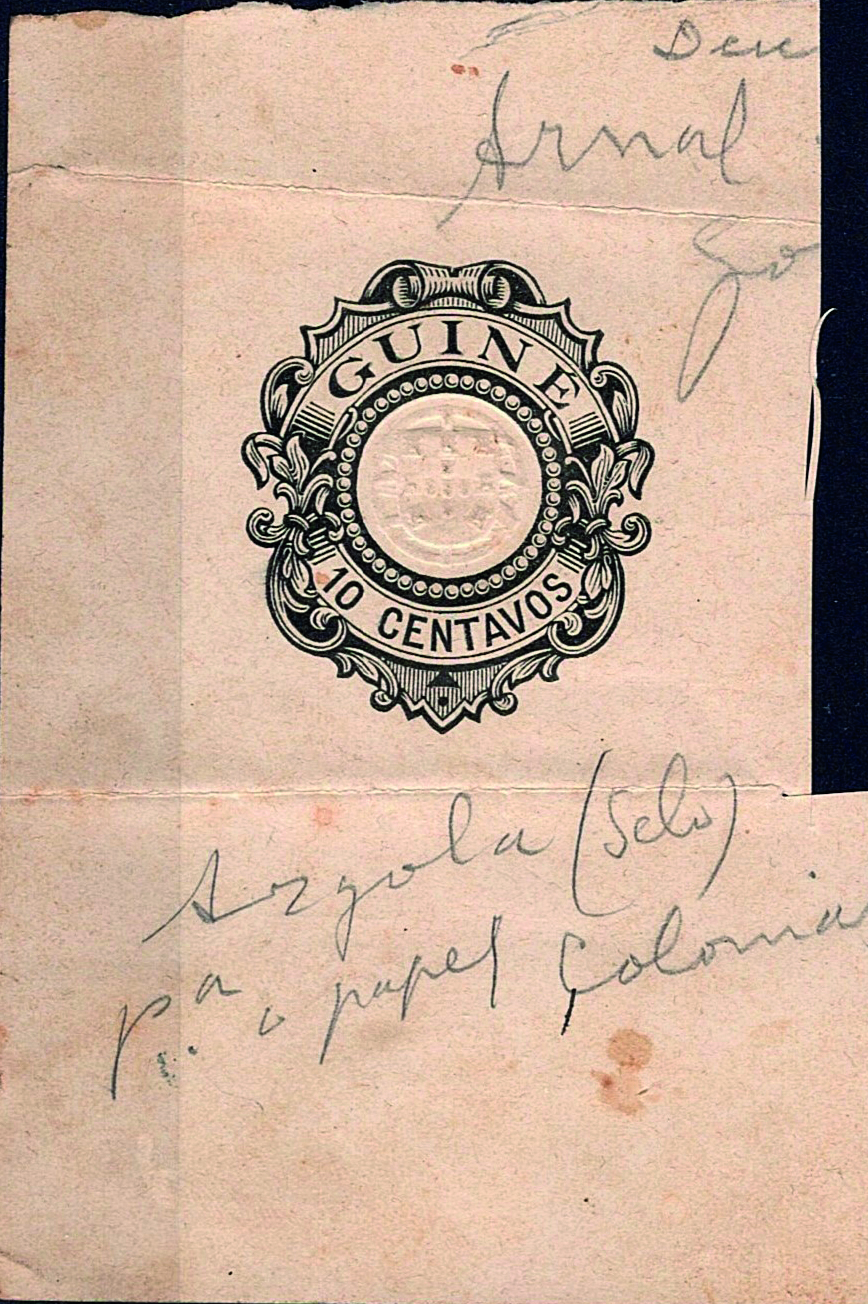 Arnal
GUINE
10 CENTAVOS
Angola (Selo)
pª o papel Colonia